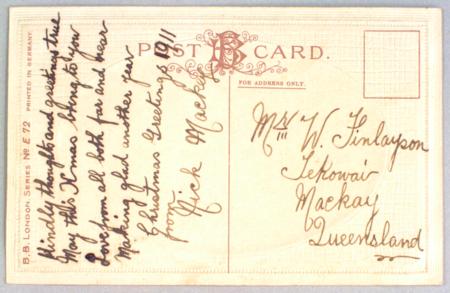 POST CARD.
BB
FOR ADDRESS ONLY.
B.B. LONDON. SERIES No. E.72 PRINTED IN GERMANY.
Kindly thoughts and greetings true
May this Xmas bring to you
Love from all both far and near
Making glad another year
Christmas Greetings 1911
from
Nick Mackay
Mr W. Finlayson
Tekowai
Mackay
Queensland